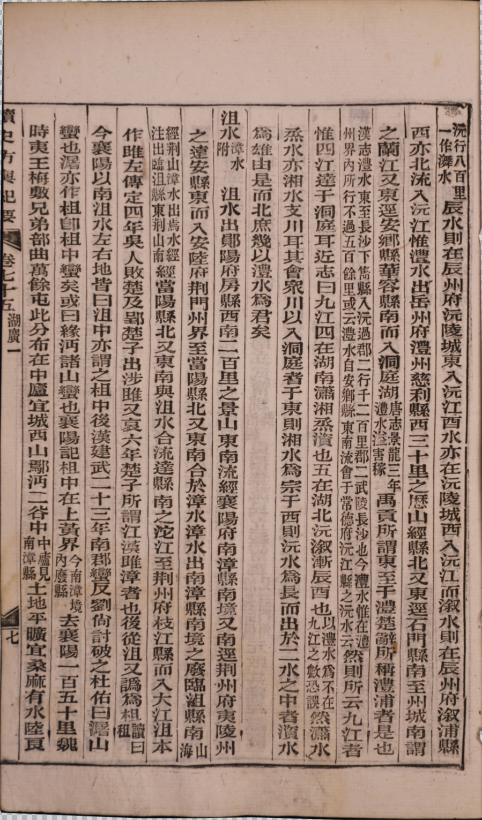 沅行八百里一作㵲水辰水則在辰州府沅陵城東入沅江酉水亦在沅陵城西入沅江而溆水則在辰州府溆浦縣
西亦北流入沅江惟澧水出岳州府澧州慈利縣西三十里之歷山經縣北又東逕石門縣南至州城南謂
之蘭江又東逕安鄉縣華容縣南而入洞庭湖唐志景龍三年澧水溢害稼禹貢所謂東至于澧楚辭所稱澧浦者是也
漢志澧水東至長沙下雋縣入沅過郡二行千二百里郡二武陵長沙也今澧水惟在澧州界內所行不過五百餘里或云澧水自安鄉縣東南流會于常德府沅江縣之沅水云然則所云九江者
惟四江達于洞庭耳近志曰九江四在湖南瀟湘蒸濆也五在湖北沅溆漸辰酉也以澧水為不在九江之數恐誤然瀟水
蒸水亦湘水支川耳其會衆川以入洞庭者于東則湘水為宗于西則沅水為長而出於二水之中者澧水
為雄由是而北庶幾以澧水為君矣
沮水漳水附 沮水出鄖陽府房縣西南二百里之景山東南流經襄陽府南漳縣南境又南逕荆州府夷陵州
之遠安縣東而入安陸府荆門州界至當陽縣北又東南合於漳水漳水出南漳縣南境之廢臨沮縣南山海
經荆山漳水出焉水經注出臨沮縣東荆山南經當陽縣北又東南與沮水合流達縣南之沱江至荆州府枝江縣而入大江沮本
作雎左傳定四年吳人敗楚及郢楚子出涉雎又哀六年楚子所謂江漢雎漳者也後從沮又譌為柤讀曰租
今襄陽以南沮水左右地皆曰沮中亦謂之柤中後漢建武二十三年南郡蠻反劉尚討破之杜佑曰潳山
蠻也潳亦作柤卽柤中蠻矣或曰緣沔諸山蠻也襄陽記柤中在上黃界今南漳境內廢縣去襄陽一百五十里魏
時夷王梅敷兄弟部曲萬餘屯此分布在中廬宜城西山鄢沔二谷中中廬見南漳縣土地平曠宜桑麻有水陸良
讀史方輿紀要
卷七十五
湖廣一
七